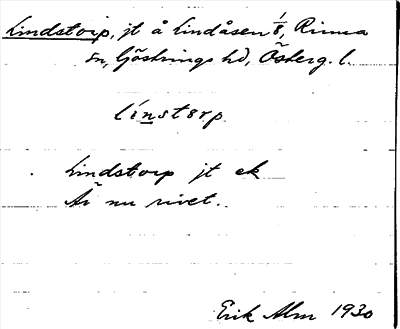 Lindstorp, jt å Lindåsen 1/8, Rinna
sn, Göstrings hd, Österg. l.
línstorp
Lindstorp jt ek
Är nu rivet.
Erik Alm 1930